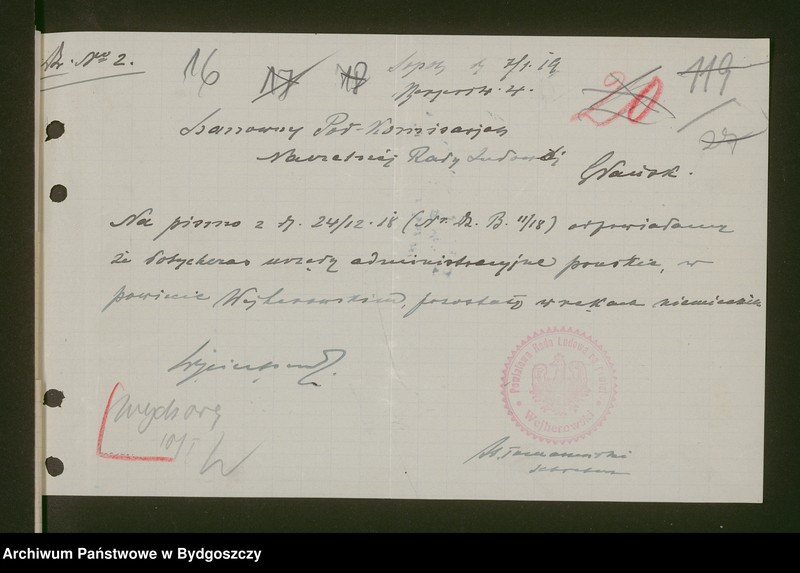 Dz. Nº 2.
16 17 18 Sopot d. 7/1.19.
20 119
4.
27
Szanowny Pod-Komisarjat
Naczelnej Rady Ludowej
Gdańsk.
Na pismo z d. 24/12.18 (Nr. Dz. B. 11/18) odpowiadamy
że dotychczas urzędy administracyjne pruskie, w
powiecie Wejherowskim, pozostały w rękach niemieckich
Powiatowa Rada Ludowa na Powiat
Wejherowski
sekretarz
Archiwum Państwowe w Bydgoszczy